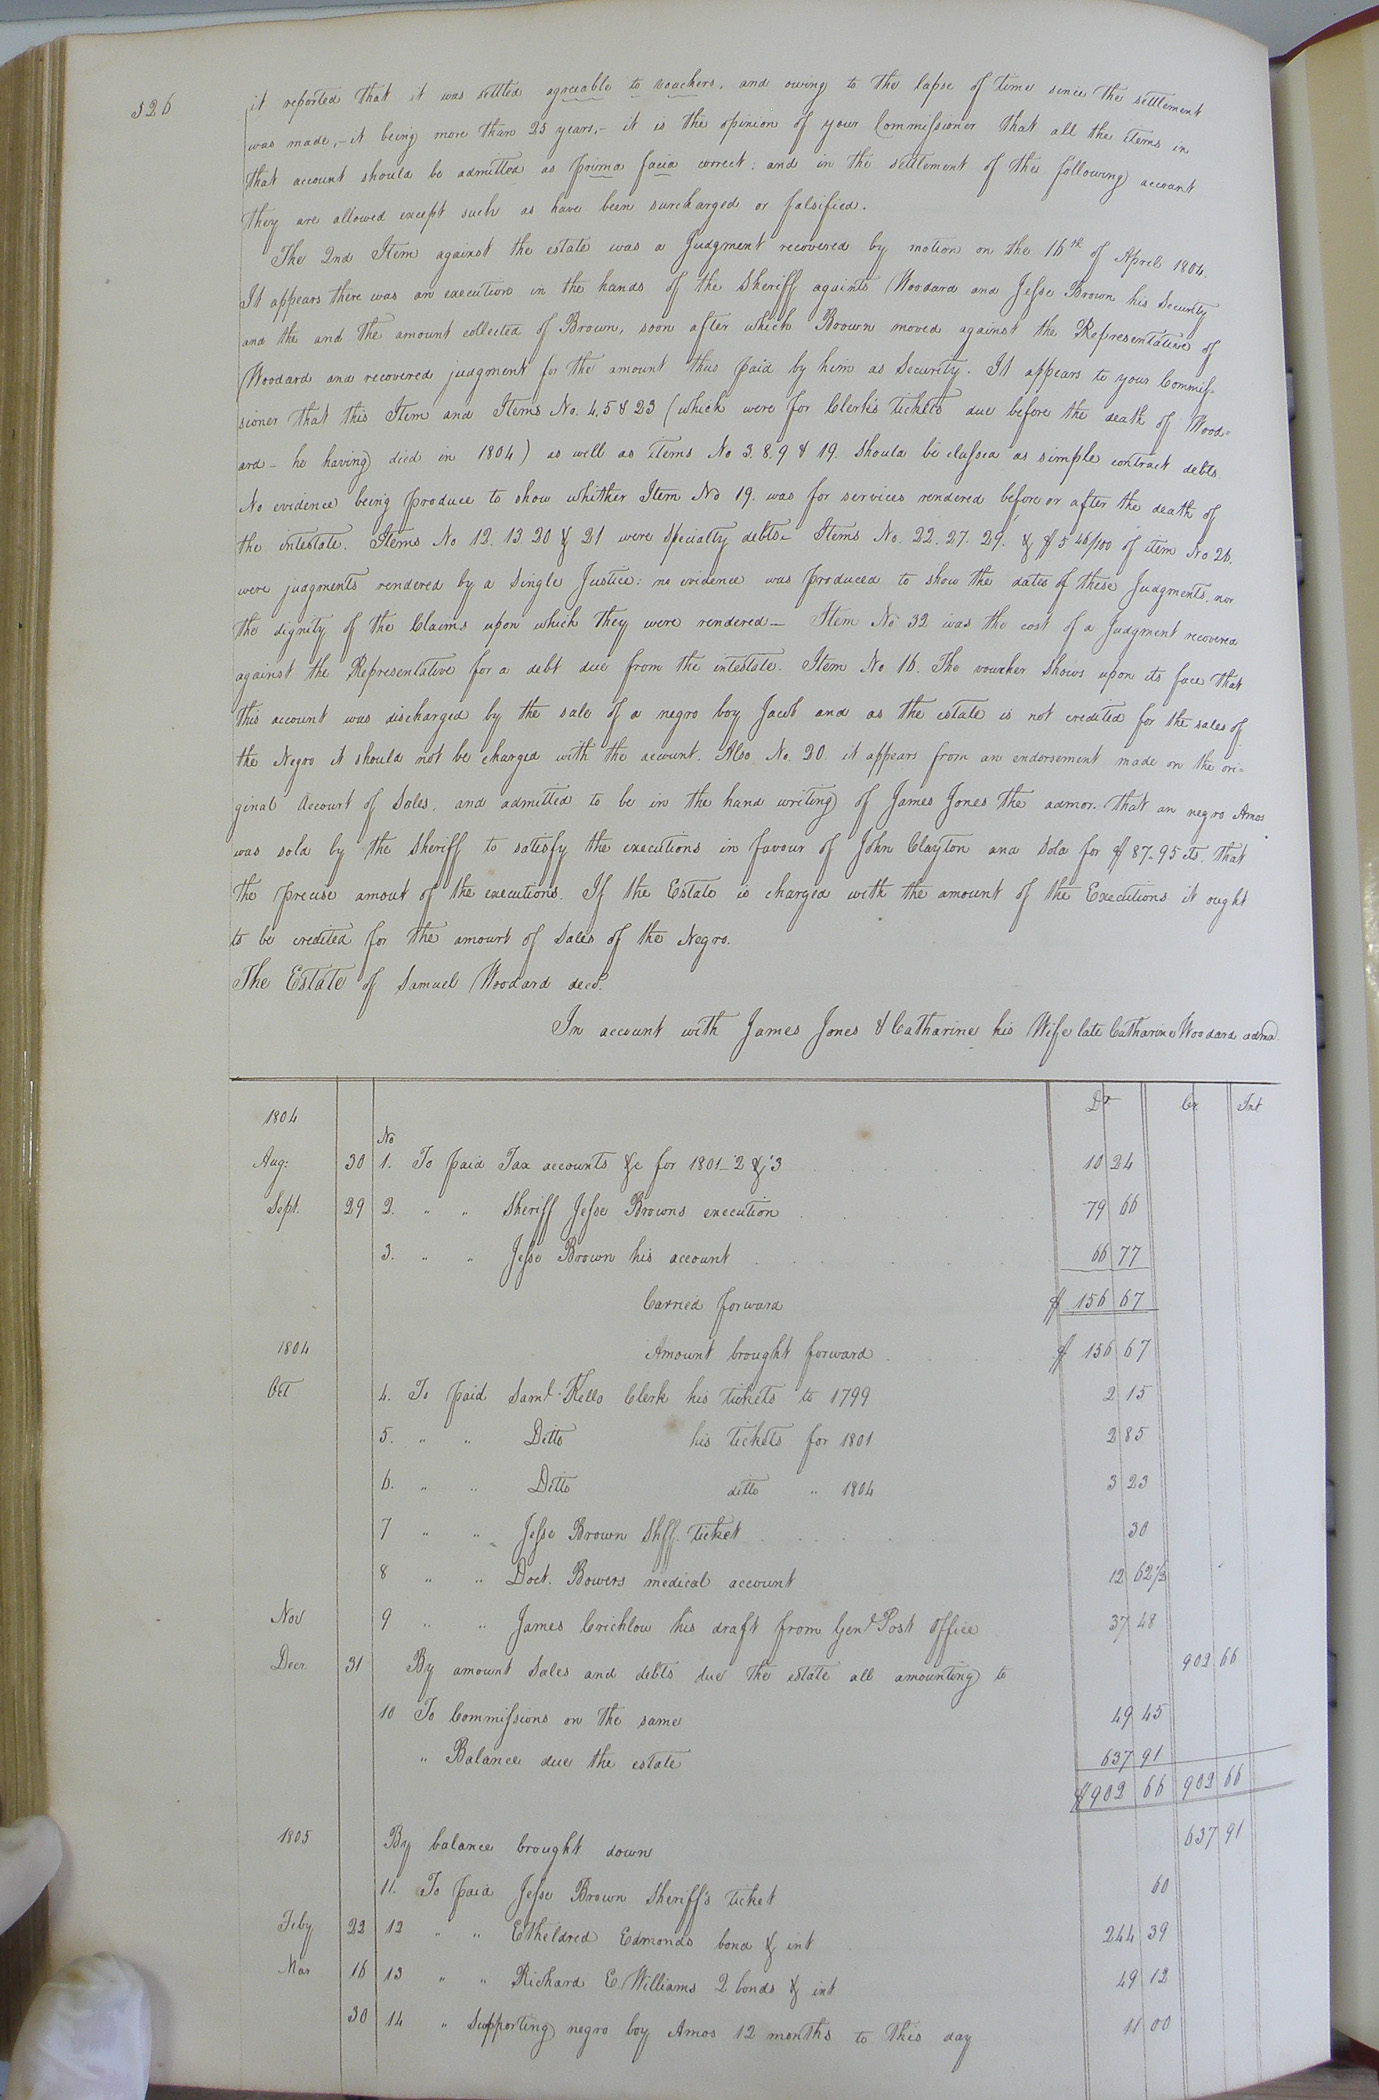 326
it reported that it was settled agreeable to vouchers, and owing to the lapse of time since the settlement
was made, - it being more than 25 years, - it is the opinion of your Commissioner that all the items in
that account should be admitted as prima facia correct: and in the settlement of the following account
they are allowed except such as have been surcharged or falsified.
The 2nd Item against the estate was a Judgment recovered by motion on the 16th of April 1804.
It appears there was an execution in the hands of the Sheriff againts Woodard and Jesse Brown his Security
and the and the amount collected of Brown, soon after which Brown moved against the Representative of
Woodard and recovered judgment for the amount thus paid by him as Security. It appears to your Commis-
sioner that this Item and Items No. 4, 5 & 23 (which were for Clerk's tickets due before the death of Wood=
ard - he having died in 1804) as well as items No 3. 8. 9 & 19. should be classed as simple contract debts.
No evidence being produce to show whither Item No 19. was for services rendered before or after the death of
the intestate. Items No 12. 13. 20 & 21 were Specialty debts - Items No. 22. 27. 29. & $5 46/100 of item No 26.
were judgments rendered by a Single Justice: no evidence was produced to show the dates of these Judgments, nor
the dignity of the Claims upon which they were rendered - Item No 32 was the cost of a Judgment recovered
against the Representative for a debt due from the intestate. Item No 16. The voucher shows upon its face that
this account was discharged by the sale of a negro boy Jacob and as the estate is not credited for the sales of
the Negro it should not be charged with the account. Also No. 20. it appears from an endorsement made on the ori=
ginal Account of Sales, and admitted to be in the hand writing of James Jones the admor. that an negro Amos
was sold by the Sheriff to satisfy the executions in favour of John Clayton and sold for $87.95 cts. that
the precise amout of the executions. If the Estate is charged with the amount of the Executions it ought
to be credited for the amount of Sales of the Negro.
The Estate of Samuel Woodard decd.
In account with James Jones & Catharine his Wife late Catharine Woodard admx.
Dr Cr Int
1804
No
Aug: 30 1. To paid Tax accounts &c for 1801-'2 & '3 10 24
Sept. 29 2. " " Sheriff Jesse Browns execution 79 66
3. " " Jesse Brown his account 66 77
Carried forward $ 156 67
1804 Amount brought forward $ 156 67
Oct 4. To paid Saml. Kello Clerk his tickets to 1799 2 15
5. " " Ditto his tickets for 1801 2 85
6. " " Ditto ditto " 1804 3 23
7 " " Jesse Brown Shff. ticket 30
8 " " Doct. Bowers medical account 12 62 1/2
Nov 9 " " James Crichlow his draft from Genl Post Office 37 48
Decr. 31 By amount Sales and debts due the estate all amounting to 902 66
10 To Commissions on the same 49 45
" Balance due the estate 637 91
$902 66 902 66
1805 By balance brought down 637 91
11. To paid Jesse Brown Sheriff's ticket 60
Feby 22 12 " " Etheldred Edmonds bond & int 244 39
Mar 16 13 " " Richard E. Williams 2 bonds & int 49 12
30 14 " Supporting negro boy Amos 12 months to this day 11 00